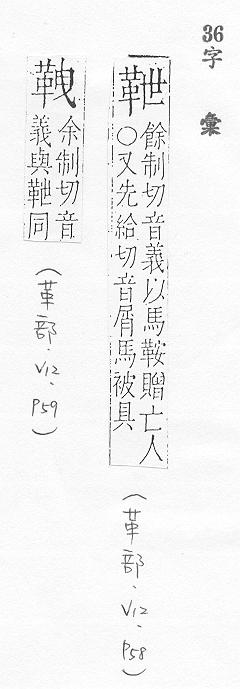 36
字彙
靾
餘制切音義以馬鞍贈亡人
○又先給切音屑馬被具
(革部.V12.P58)
𩊾
余制切音
義與靾同
(革部.V12.P59)